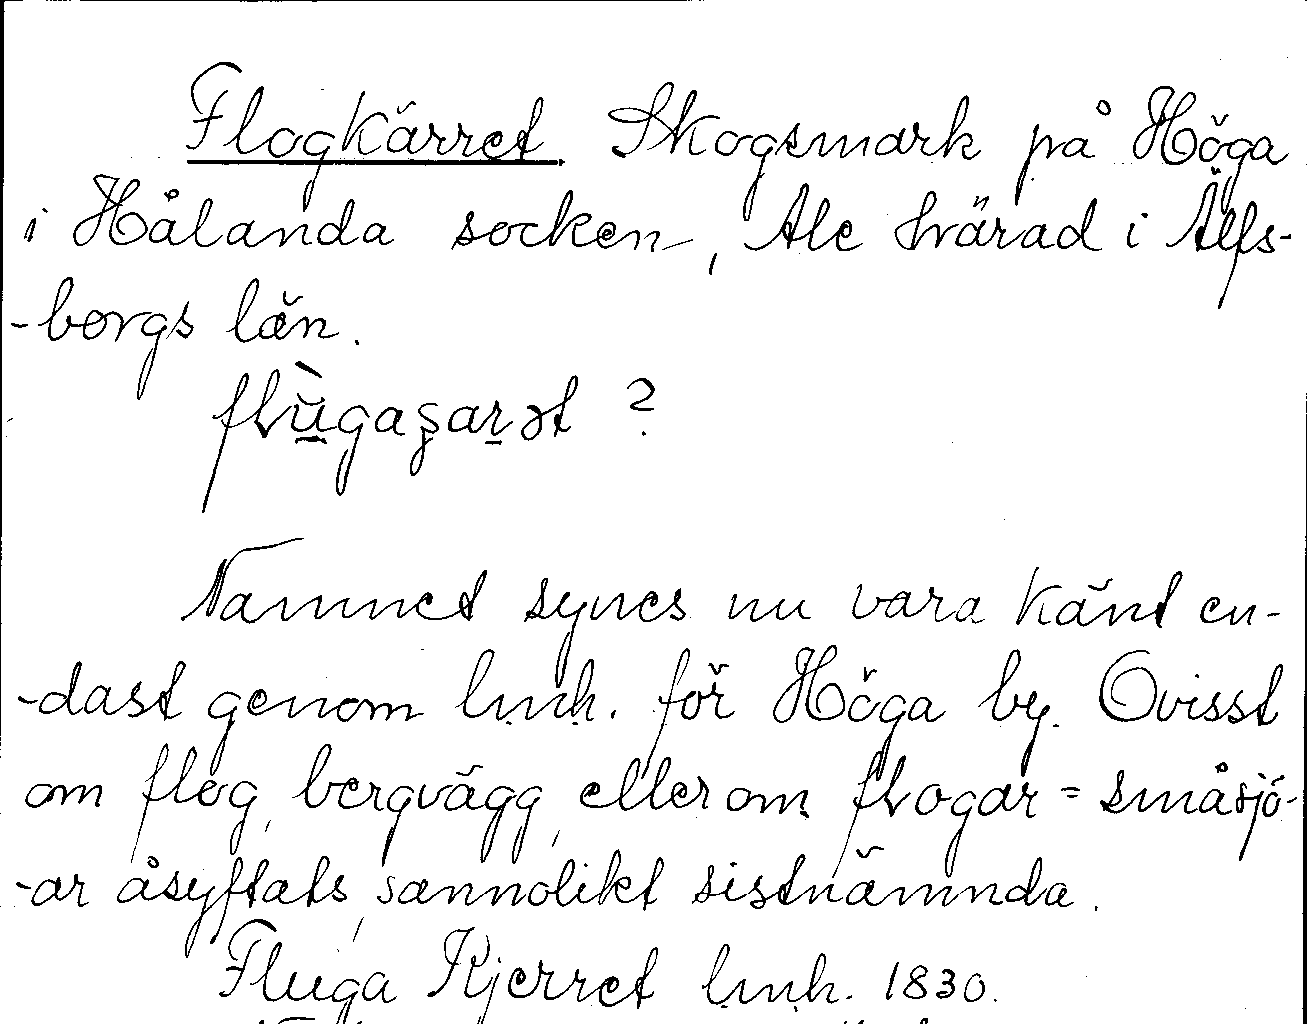 Flogkärret Skogsmark på Höga
i Hålanda socken, Ale härad i Älfs-
-borgs län.
flùgaʂarət ?
Namnet synes nu vara känt en-
-dast genom lmh. för Höga by. Ovisst
om flog, bergvägg, eller om flogar = småsjö-
-ar åsyftats, sannolikt sistnämnda.
Fluga Kjerret lmh. 1830.